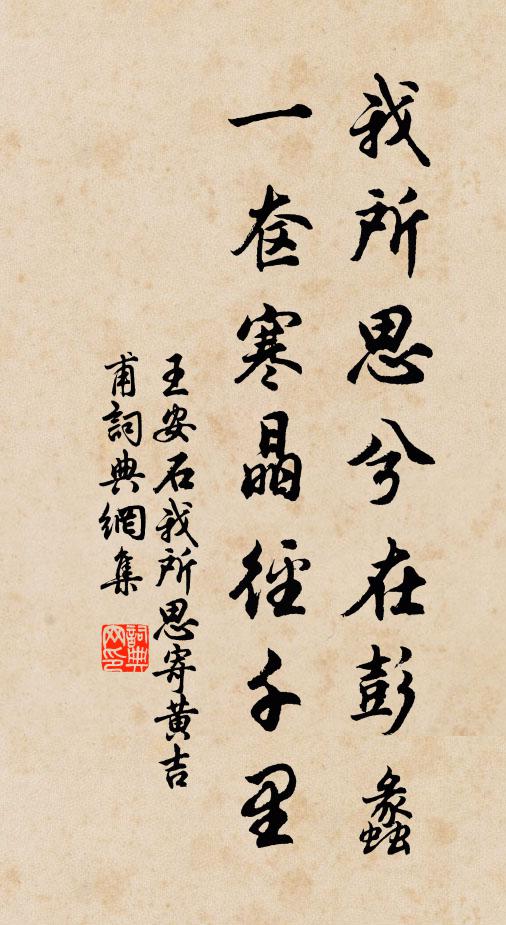 我所思兮在彭蠡
一奁寒晶徑千里
王安石我所思寄黃吉
甫詞典網集
詞典
网印